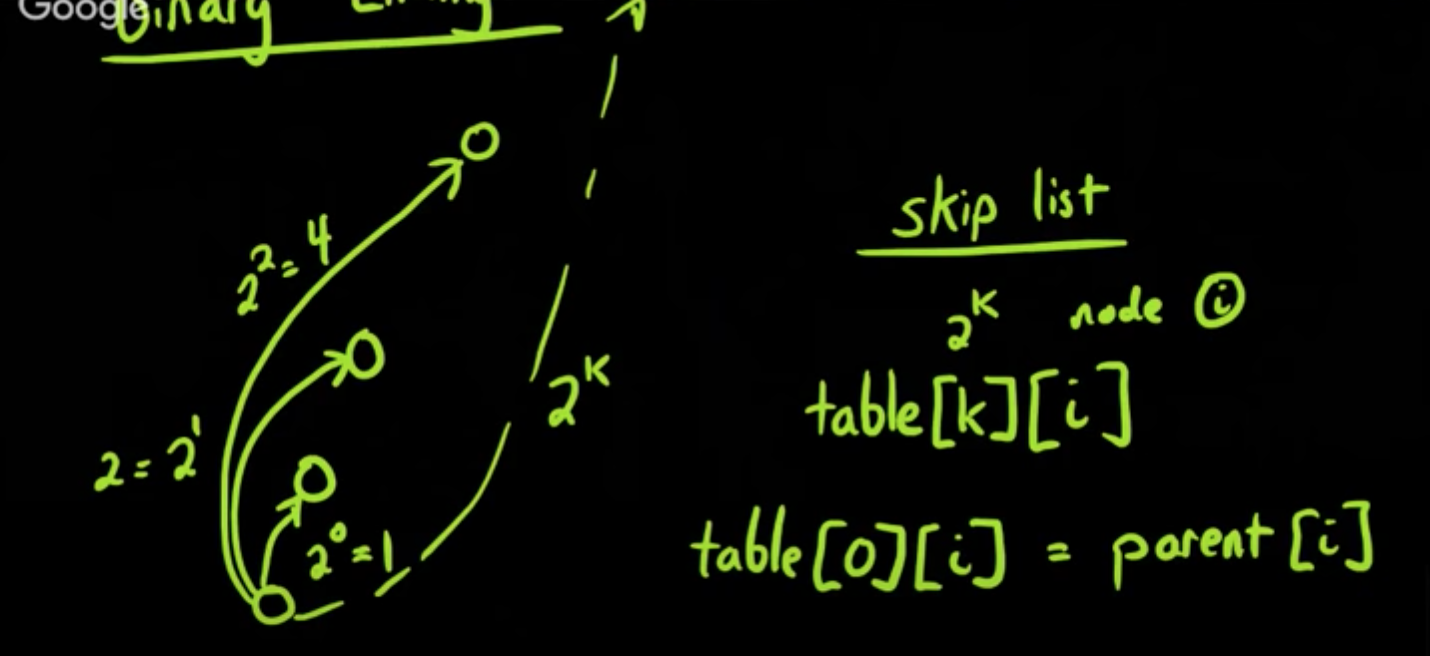 Google
Binary
2² = 4
2 = 2¹
2⁰ = 1
2ᴷ
skip list
2ᴷ node i
table[k][i]
table[0][i] = parent[i]